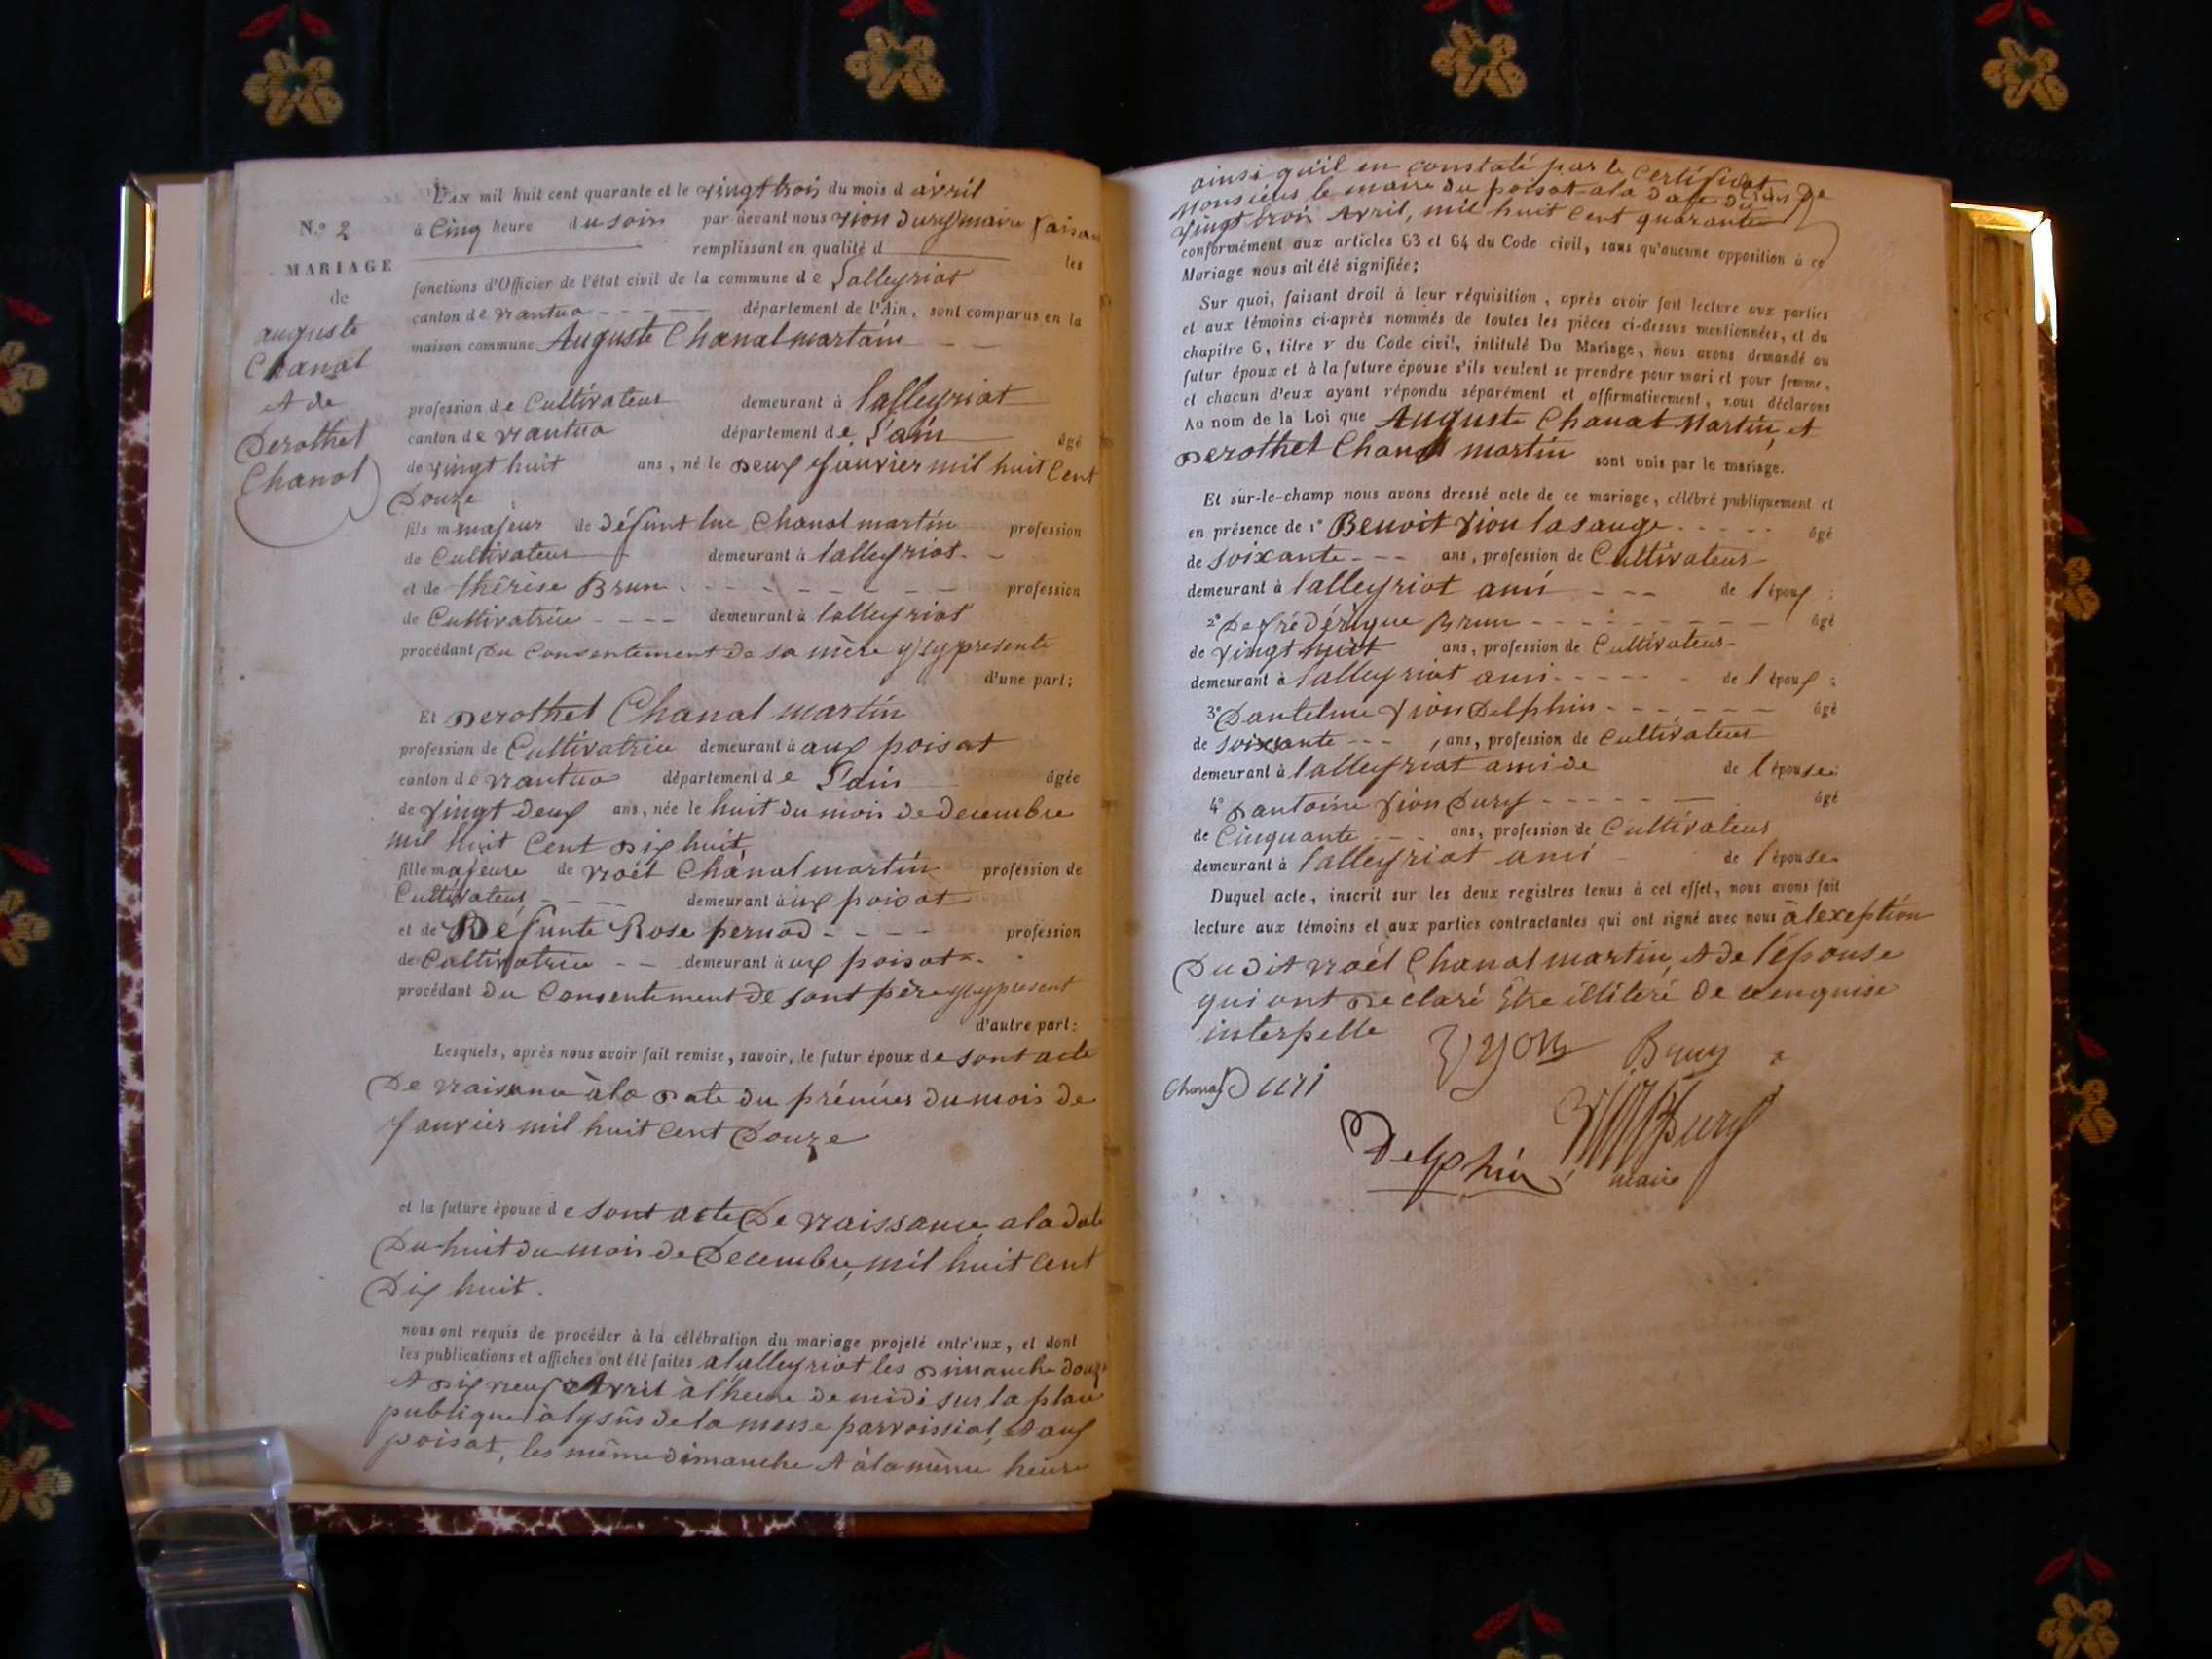 L'AN mil huit cent quarante et le vingt trois du mois d avril
N.º 2
MARIAGE
de
auguste
Chanal
et de
Derothet
Chanal
à Cinq heure du soir par devant nous vion Dury maire faisan
remplissant en qualité d les
fonctions d'Officier de l'état civil de la commune de Lalleyriat
canton de nantua département de l'Ain, sont comparus en la
maison commune Auguste Chanal martain
profession de Cultivateur demeurant à lalleyriat
canton de nantua département de L'ain âgé
de vingt huit ans, né le Deux janvier mil huit Cent
Douze
fils majeur de Défunt luc Chanal martin profession
de Cultivateur demeurant à lalleyriat
et de thérèse Brun profession
de Cultivatrice demeurant à lalleyriat
procédant Du Consentement De sa mère y sy presente
d'une part;
Et Derothet Chanal martin
profession de Cultivatrice demeurant à aux poisat
canton de nantua département de L'ain âgée
de vingt Deux ans, née le huit du mois De Decembre
mil huit Cent Dix huit
fille majeure de noél Chanal martin profession de
Cultivateur demeurant à ux poisat
et de Défunte Rose pernod profession
de Cultivatrice demeurant à ux poisat
procédant du Consentement De sont père y sy present
d'autre part:
Lesquels, après nous avoir fait remise, savoir, le futur époux de sont acte
De naisanse à la Date du prémier du mois De
janvier mil huit Cent Douze
et la future épouse de sont acte De naissance, a la Date
Du huit du mois De Decembre, mil huit Cent
Dix huit.
nous ont requis de procéder à la célébration du mariage projeté entr'eux, et dont
les publications et affiches ont été faites a lalleyriat les Dimanche Douze
et Dix neuf Avril à l'heure De midi sur la place
publique à lysûs de la messe parroissial, et aux
poisat, les même Dimanche et à la même heure
ainsi qu'il en constaté par le Certificat De
Monsieur le maire du poisat a la Date Du
vingt trois Avril, mil huit Cent quarante
conformément aux articles 63 et 64 du Code civil, sans qu'aucune opposition à ce
Mariage nous ait été signifiée;
Sur quoi, faisant droit à leur réquisition, après avoir fait lecture aux parties
et aux témoins ci-après nommés de toutes les pièces ci-dessus mentionnées, et du
chapitre 6, titre v du Code civil, intitulé Du Mariage, nous avons demandé au
futur époux et à la future épouse s'ils veulent se prendre pour mari et pour femme,
et chacun d'eux ayant répondu séparément et affirmativement, nous déclarons
Au nom de la Loi que Auguste Chanal Martin, et
Derothet Chanal martin sont unis par le mariage.
Et sur-le-champ nous avons dressé acte de ce mariage, célébré publiquement et
en présence de 1º Benoit Vion lasauge âgé
de soixante ans, profession de Cultivateur
demeurant à lalleyriat ami de l époux;
2º De frédérique Brun âgé
de vingt huit ans, profession de Cultivateur
demeurant à lalleyriat ami de l époux;
3º Dantelme Vion Delphin âgé
de soixante ans, profession de Cultivateur
demeurant à lalleyriat ami de de l épouse;
4º Dantoine Vion Dury âgé
de Cinquante ans, profession de Cultivateur
demeurant à lalleyriat ami de l épouse
Duquel acte, inscrit sur les deux registres tenus à cet effet, nous avons fait
lecture aux témoins et aux parties contractantes qui ont signé avec nous à lexeption
Du Dit noél Chanal martin, et De l'épouse
qui ont Déclaré Être illiteré De ce enquise
interpelle
Vyon Brun
Chanal Duri
Delphin Vion Dury
maire